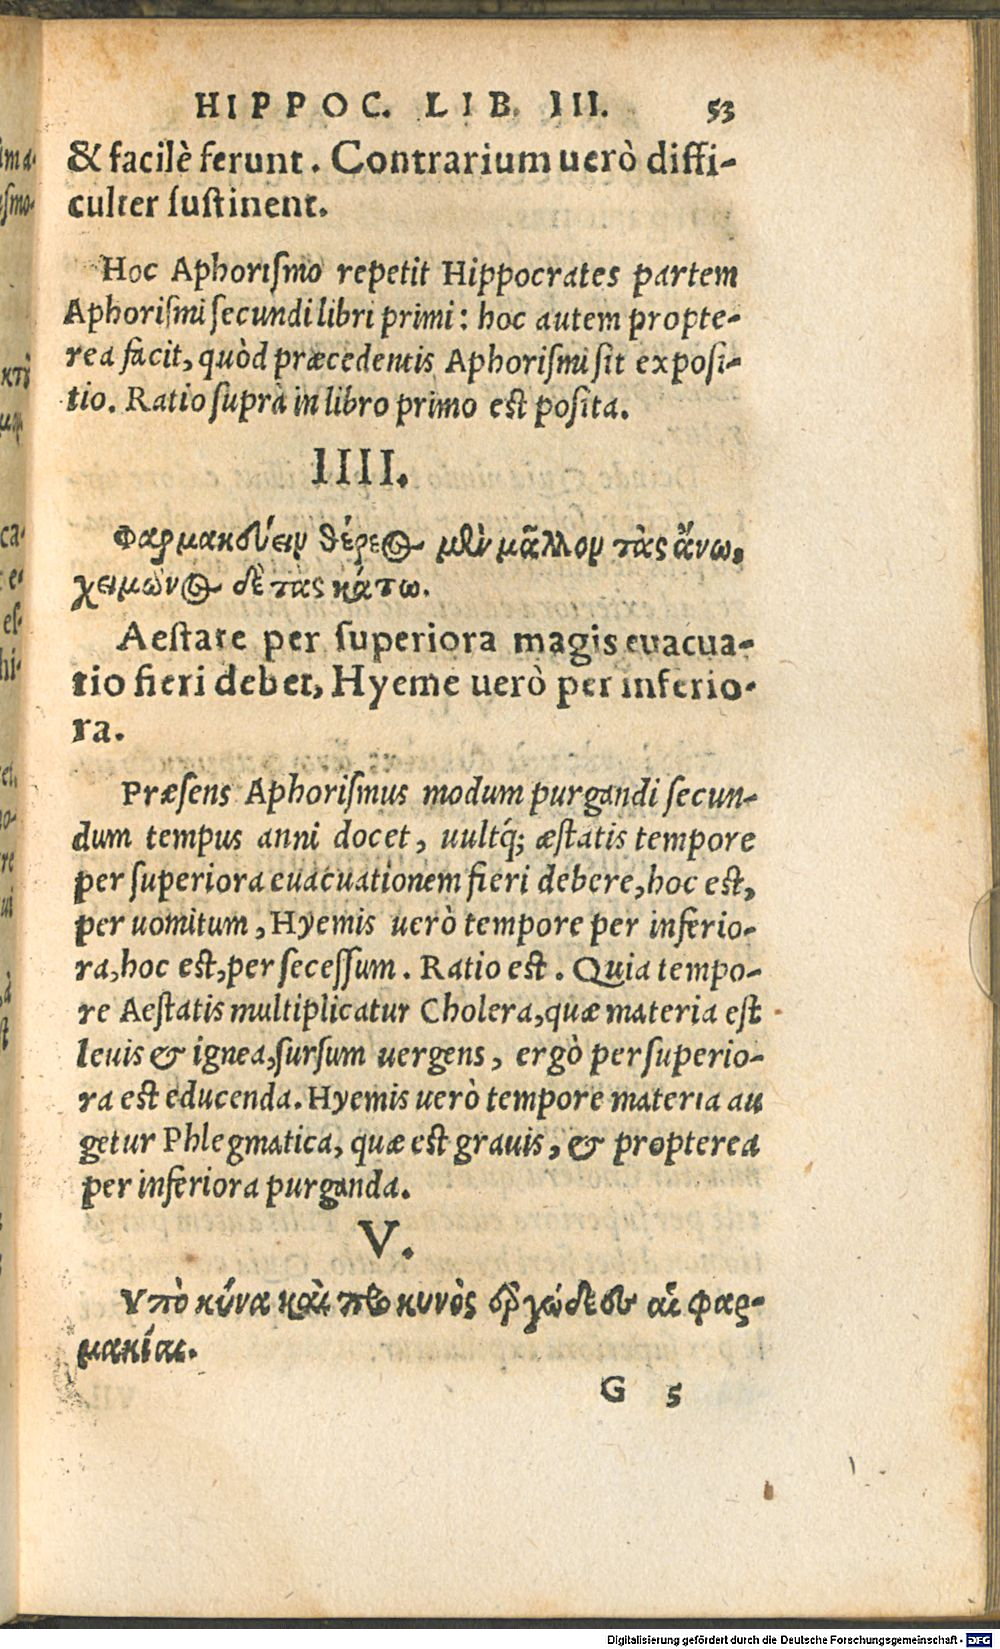 HIPPOC. LIB. III. 53
& facilè ferunt. Contrarium uerò diffi-
culter ſuſtinent.
Hoc Aphoriſmo repetit Hippocrates partem
Aphoriſmi ſecundi libri primi: hoc autem propte-
rea facit, quòd præcedentis Aphoriſmi ſit expoſi-
tio. Ratio ſuprà in libro primo eſt poſita.
IIII.
Φαρμακεύειν θέρεος μὲν μᾶλλον τὰς ἄνω,
χειμῶνος δὲ τὰς κάτω.
Aeſtate per ſuperiora magis euacua-
tio fieri debet, Hyeme uerò per inferio-
ra.
Præſens Aphoriſmus modum purgandi ſecun-
dum tempus anni docet, uultq́; æſtatis tempore
per ſuperiora euacuationem fieri debere, hoc eſt,
per uomitum, Hyemis uerò tempore per inferio-
ra, hoc eſt, per ſeceſſum. Ratio eſt. Quia tempo-
re Aeſtatis multiplicatur Cholera, quæ materia eſt
leuis & ignea, ſurſum uergens, ergò per ſuperio-
ra eſt educenda. Hyemis uerò tempore materia au
getur Phlegmatica, quæ eſt grauis, & propterea
per inferiora purganda.
V.
Υπὸ κύνα καὶ πρὸ κυνὸς ἐργώδεες αἱ φαρ-
μακίαι.
G 5
Digitalisierung gefördert durch die Deutsche Forschungsgemeinschaft - DFG